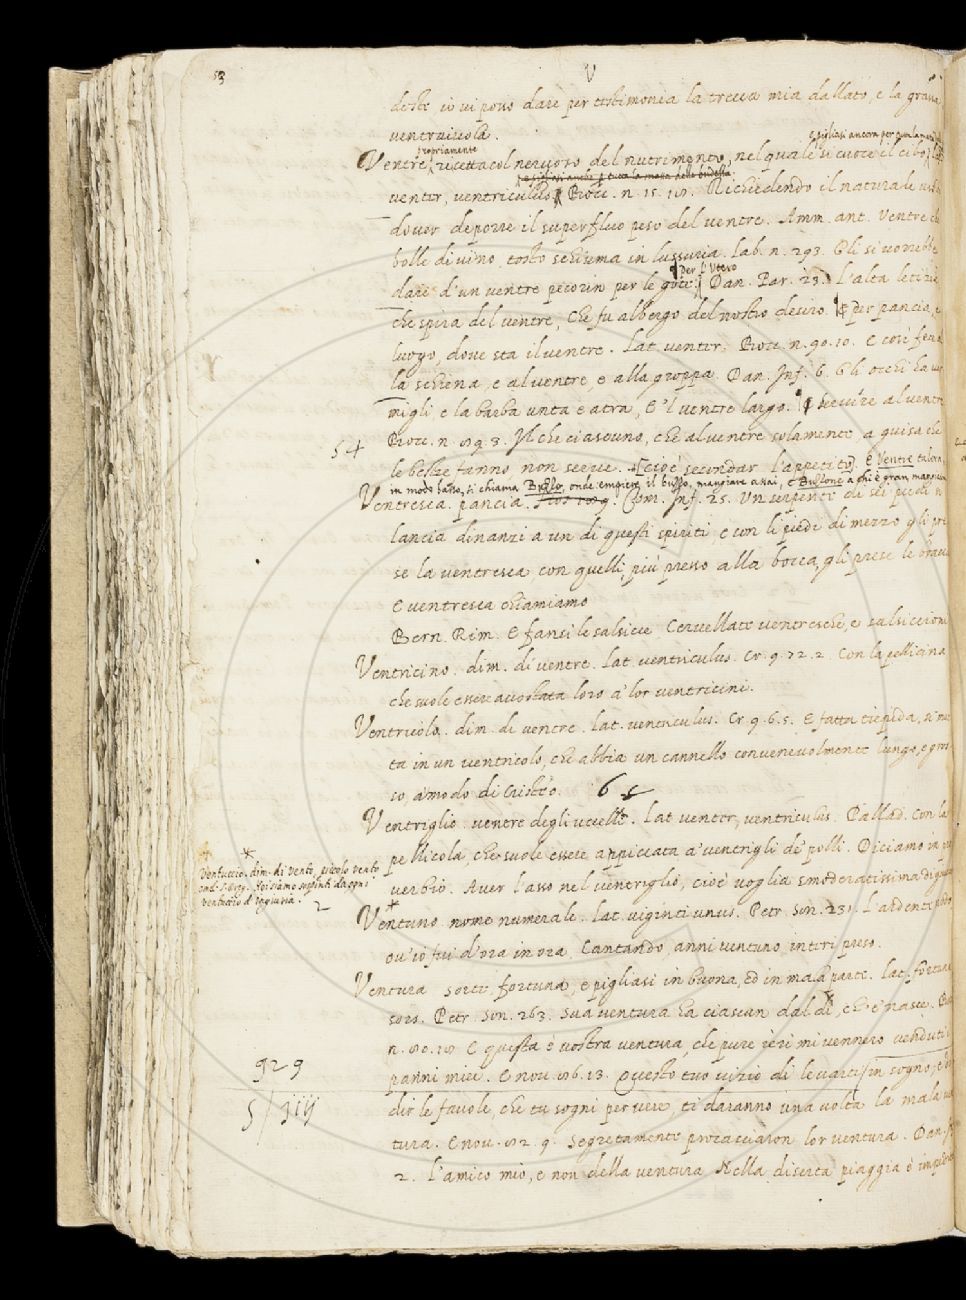 53
V
deste, io vi posso dare per testimonia la trecca mia dallato, e la grassa
ventraiuola.
e pigliasi ancora per quella parte
propriamente
Ventre, ricettacol nervoso del nutrimento, nel quale si cuoce il cibo, lat.
pigliasi anche p tutta la massa delle budella
venter, ventriculus. Bocc. n. 15. Richiedendo il naturale uso
dover deporre il superfluo peso del ventre. Amm. ant. Ventre che
bolle di vino tosto schiuma in lussuria. Lab. n. 293. Gli si vorrebbe
Per l'Utero
dare d'un ventre pecorin per le gote. Dan. Par. 23. L'alta letizia
che spira del ventre, Che fu albergo del nostro desiro. ¶ per pancia, e
luogo, dove sta il ventre. Lat. venter. Bocc. n. 90. 10. E così fece
la schiena, e al ventre e alla groppa. Dan. Inf. 6. Gli occhi ha ver
migli e la barba unta e atra, E'l ventre largo. ¶ servire al ventre
54
Bocc. n. 98. Il che ciascuno, che al ventre solamente, a guisa che
le bestie fanno non serve. [cioè secondar l'appetito]. E Ventre talora,
in modo basso, si chiama Buffo, onde empiere il buffo, mangiare assai, e Buffone a chi è gran mangiatore
Ventresca. pancia. Com. Inf. 25. Un serpente di sei piedi si
lancia dinanzi a un di questi spiriti, e con li piedi di mezzo gli pre
se la ventresca con quelli più presso alla bocca, gli prese le braccia
E ventresca chiamiamo
Bern. Rim. E fansi le salsicce Cervellate ventresche, e salsiccioni
Ventricino. dim. di ventre. Lat. ventriculus. Cr. 9. 72. 2. Con la pellicina
che suole essere accostata loro a' lor ventricini.
Ventricolo. dim. di ventre. Lat. ventriculus. Cr. 9. 6. 5. E fatta tiepida, si met
ta in un ventricolo, che abbia un cannello convenevolmente lungo, e gros
so, a modo di cristeo. 6
Ventriglio. ventre degli uccelli. Lat. venter, ventriculus. Pallad. Con la
pellicola, che suole essere appiccata a' ventrigli de' polli. Diciamo in pro
verbio. Aver l'asso nel ventriglio, cioè voglia smoderatissima di giucare
Ventuccio. dim. di vento, piccolo vento
Noi siamo sospinti da ogni
ventuccio d'ingiuria. 2
Ventuno. nome numerale. Lat. viginti unus. Petr. Son. 231. L'ardente nodo
ov'io fui d'ora in ora, Contando, anni ventuno interi preso.
Ventura. sorte, fortuna, e pigliasi in buona, ed in mala parte. Lat. fortuna
sors. Petr. Son. 263. Sua ventura ha ciascun dal dì, che e' nasce. Bocc.
n. 80. E questa è vostra ventura, che pure ieri mi vennero venduti i
929
panni miei. E nov. 13. Questo tuo vizio di levarti in sogno, e di
dir le favole, che tu sogni per vere, ti daranno una volta la mala ven
tura. E nov. 9. Segretamente procacciaron lor ventura. Dan.
2. L'amico mio, e non della ventura Nella diserta piaggia è impedito